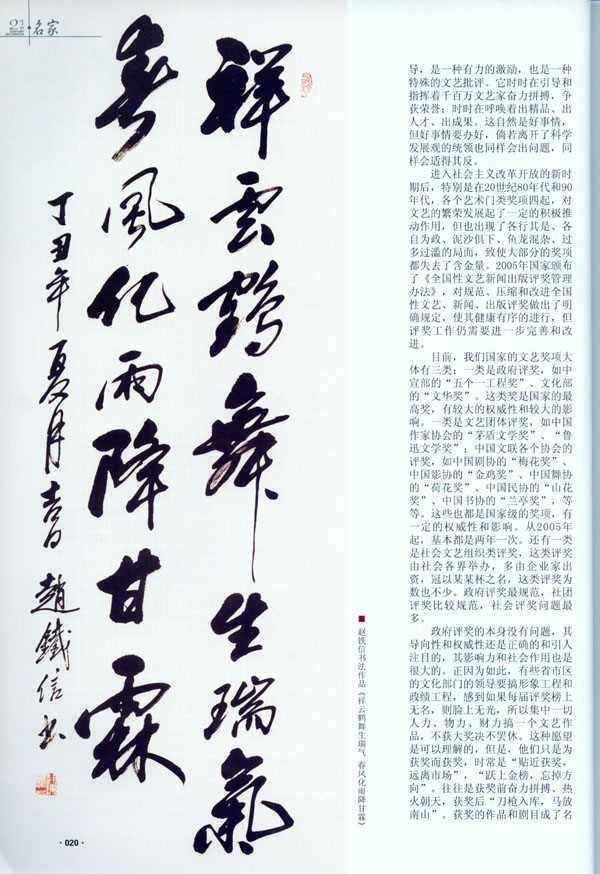 21
名家
祥雲鶴舞生瑞氣
春風化雨降甘霖
丁丑年夏月吉日 趙鐵信书
■ 赵铁信书法作品《祥云鹤舞生瑞气 春风化雨降甘霖》
导，是一种有力的激励，也是一种
特殊的文艺批评。它时时在引导和
指挥着千百万文艺家奋力拼搏，争
获荣誉；时时在呼唤着出精品、出
人才、出成果。这自然是好事情，
但好事情要办好，倘若离开了科学
发展观的统领也同样会出问题，同
样会适得其反。
进入社会主义改革开放的新时
期后，特别是在20世纪80年代和90
年代，各个艺术门类奖项四起，对
文艺的繁荣发展起了一定的积极推
动作用，但也出现了各行其是、各
自为政、泥沙俱下、鱼龙混杂、过
多过滥的局面，致使大部分的奖项
都失去了含金量。2005年国家颁布
了《全国性文艺新闻出版评奖管理
办法》，对规范、压缩和改进全国
性文艺、新闻、出版评奖做出了明
确规定，使其健康有序的进行，但
评奖工作仍需要进一步完善和改
进。
目前，我们国家的文艺奖项大
体有三类：一类是政府评奖，如中
宣部的“五个一工程奖”、文化部
的“文华奖”。这类奖是国家的最
高奖，有较大的权威性和较大的影
响。一类是文艺团体评奖，如中国
作家协会的“茅盾文学奖”、“鲁
迅文学奖”；中国文联各个协会的
评奖，如中国剧协的“梅花奖”、
中国影协的“金鸡奖”、中国舞协
的“荷花奖”、中国民协的“山花
奖”、中国书协的“兰亭奖”，等
等。这些也都是国家级的奖项，有
一定的权威性和影响。从2005年
起，基本都是两年一次。还有一类
是社会文艺组织类评奖，这类评奖
由社会各界举办，多由企业家出
资，冠以某某杯之名，这类评奖为
数也不少。政府评奖最规范，社团
评奖比较规范，社会评奖问题最
多。
政府评奖的本身没有问题，其
导向性和权威性还是正确的和引人
注目的，其影响力和社会作用也是
很大的。正因为如此，有些省市区
的文化部门的领导要搞形象工程和
政绩工程，感到如果每届评奖榜上
无名，则脸上无光，所以集中一切
人力、物力、财力搞一个文艺作
品，不获大奖决不罢休。这种愿望
是可以理解的，但是，他们只是为
获奖而获奖，时常是“贴近获奖，
远离市场”，“跃上金榜，忘掉方
向”。往往是获奖前奋力拼搏、热
火朝天，获奖后“刀枪入库，马放
南山”。获奖的作品和剧目成了名
·020·